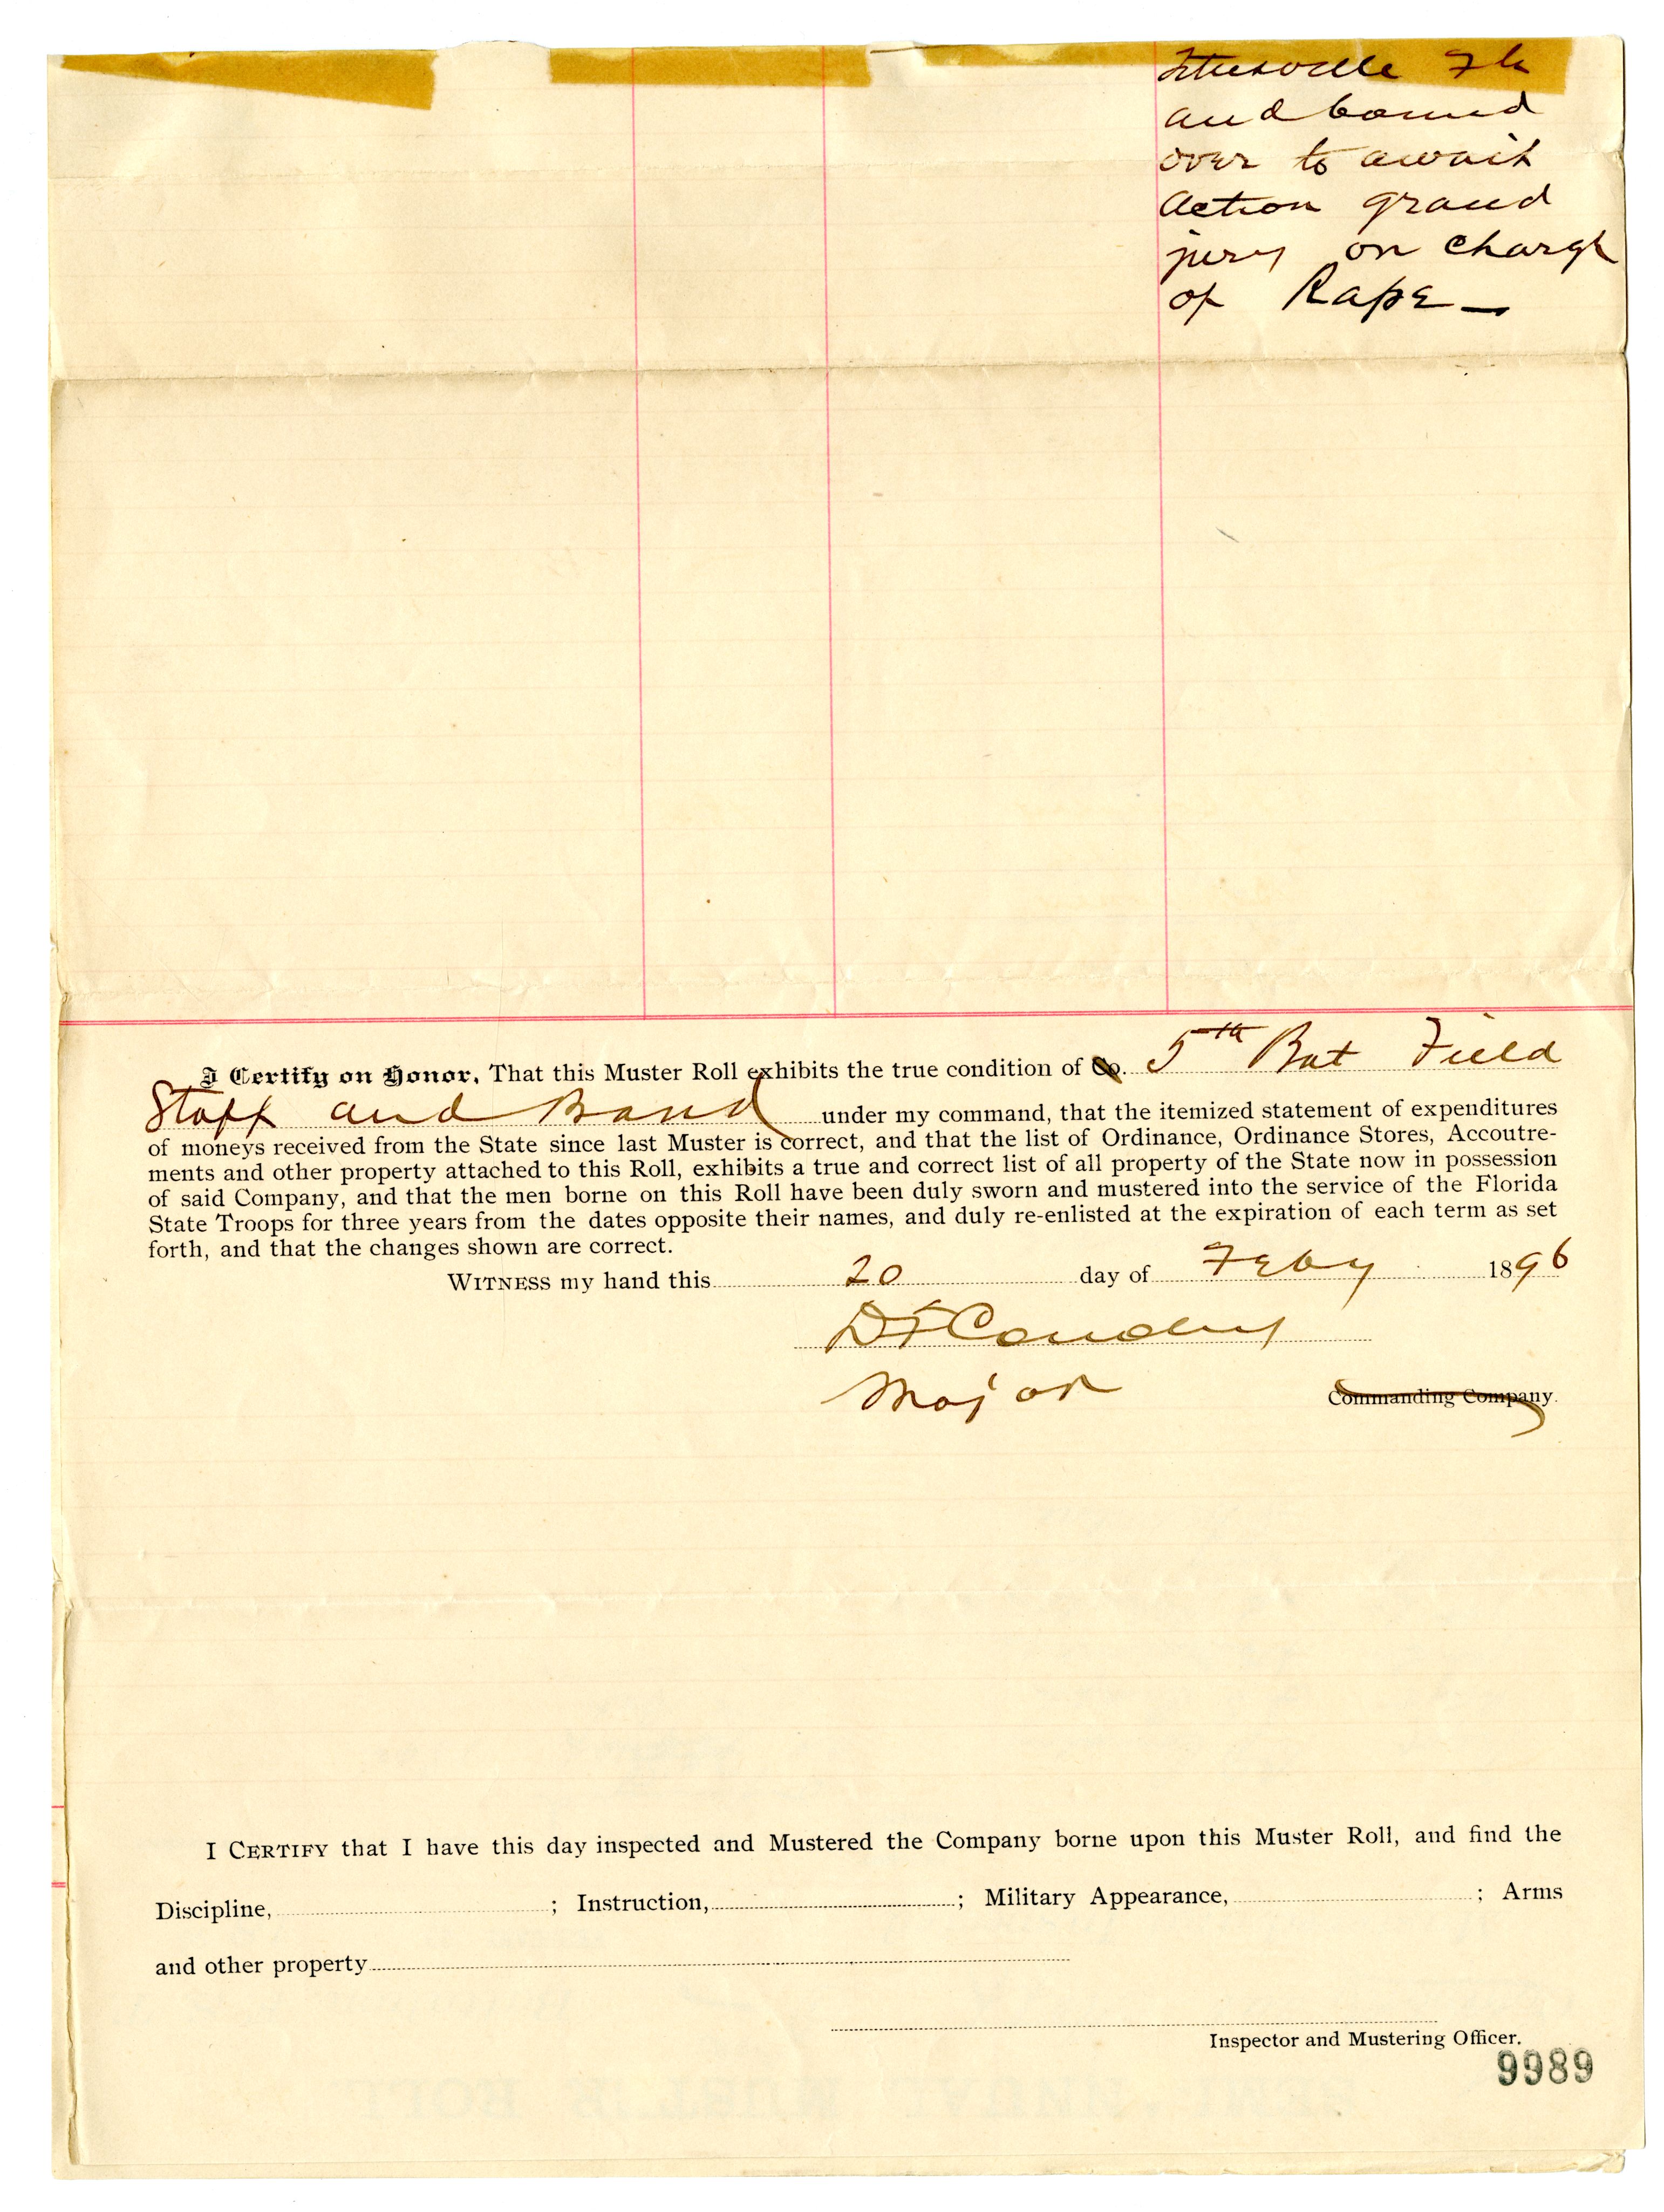 Titusville Fla
and bound
over to await
action grand
jury on charge
of Rape —
I Certify on Honor, That this Muster Roll exhibits the true condition of Co. 5th Bat Field
Staff and Band under my command, that the itemized statement of expenditures
of moneys received from the State since last Muster is correct, and that the list of Ordinance, Ordinance Stores, Accoutre-
ments and other property attached to this Roll, exhibits a true and correct list of all property of the State now in possession
of said Company, and that the men borne on this Roll have been duly sworn and mustered into the service of the Florida
State Troops for three years from the dates opposite their names, and duly re-enlisted at the expiration of each term as set
forth, and that the changes shown are correct.
WITNESS my hand this 20 day of Feby 1896
Major Commanding Company.
I CERTIFY that I have this day inspected and Mustered the Company borne upon this Muster Roll, and find the
Discipline, ; Instruction, ; Military Appearance, ; Arms
and other property
Inspector and Mustering Officer.
9989